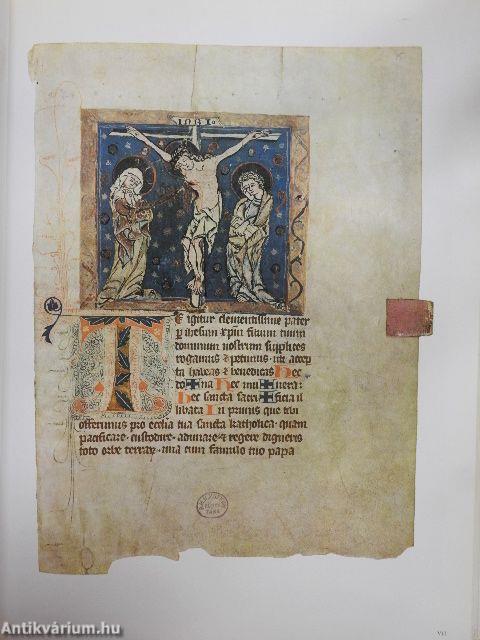 INRI
T
E igitur clementissime pater
p ihesum xpm filium tuum
dominum nostrum supplices
rogamus & petimus uti accep
ta habeas & benedicas Hec
do✚na Hec mu✚nera:
hec sancta sacri✚ficia il
libata In primis que tibi
offerimus pro ecclia tua sancta katholica quam
pacificare custodire adunare & regere digneris
toto orbe terrar una cum famulo tuo papa
VII
Antikvárium.hu